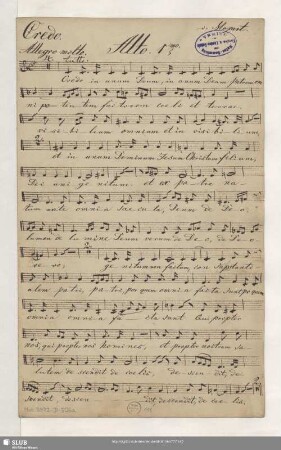 Credo.
v. Mozart
Allegro molto. Alto. 1mo.
Tutti
Credo in unum Deum, in unum Deum patrem om
ni po ten tem factorem coeli et terrae,
vi si bi lium omnium et in visi bi li um,
et in unum Dominum Jesum Christum filium,
Dei uni ge nitum. et ex pa tre na
tum ante omnia sae cu la, Deum de De o,
lumen de lu mine Deum verum de De o, de De o
ve ro, ge nitum non factum, con substanti
alem pa tri, pa tri, per quem omnia facta sunt per quem
omnia omni a fa cta sunt Qui propter
nos, qui propter nos homines, et propter nostram sa
lutem de scendit de coelis, de scen dit, de
scendit, descen dit, descendit, de coe lis,